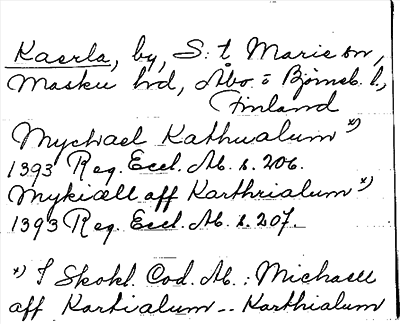 Kaerla, by, S:t Marie sn,
Masku hd, Åbo= o Björneb. l.,
Finland
Mychael Kathualum *)
1393 Reg. Eccl. Ab. s. 206.
Mykiæll aff Karthrialum *)
1393 Reg. Eccl. Ab. s. 207.
*) I Skokl. Cod. Ab.: Michaell
aff Kartialum -- Karthialum